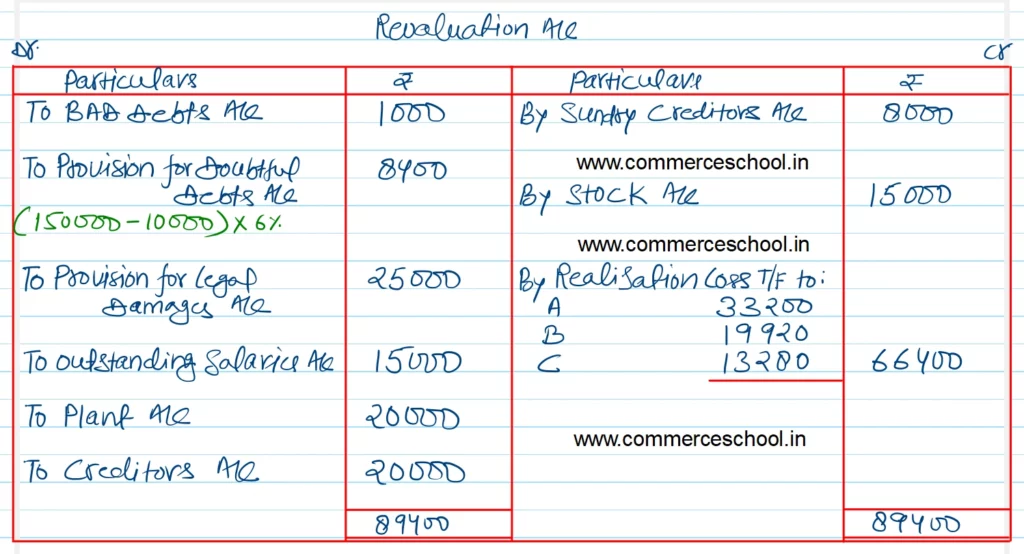 Revaluation A/c
Dr. Cr
Particulars ₹ Particulars ₹
To BAD Debts A/c 1000 By Sundry Creditors A/c 8000
To Provision for Doubtful 8400 www.commerceschool.in
Debts A/c By STOCK A/c 15000
(150000-10000) x 6%
www.commerceschool.in
To Provision for Legal 25000 By Realisation Loss T/F to:
Damages A/c A 33200
B 19920
To Outstanding Salaries A/c 15000 C 13280 66400
To Plant A/c 20000
www.commerceschool.in
To Creditors A/c 20000
89400 89400